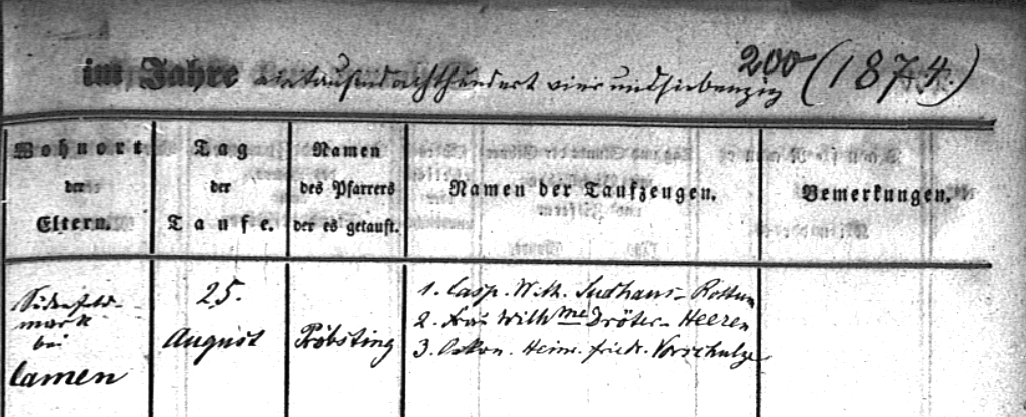 200
im Jahre eintausendachthundert vierundsiebenzig (1874.)
Wohnort
der
Eltern.
Tag
der
Taufe.
Namen
des Pfarrers
der es getauft.
Namen der Taufzeugen.
Bemerkungen.
mark
bei
Camen
25.
August
Pröbsting
1. Casp. Wilh. Sudhaus - Rottum
2. Frau Wilhme Dröter - Heeren
3. Oekon. Heinr. Friedr. Vorschulze